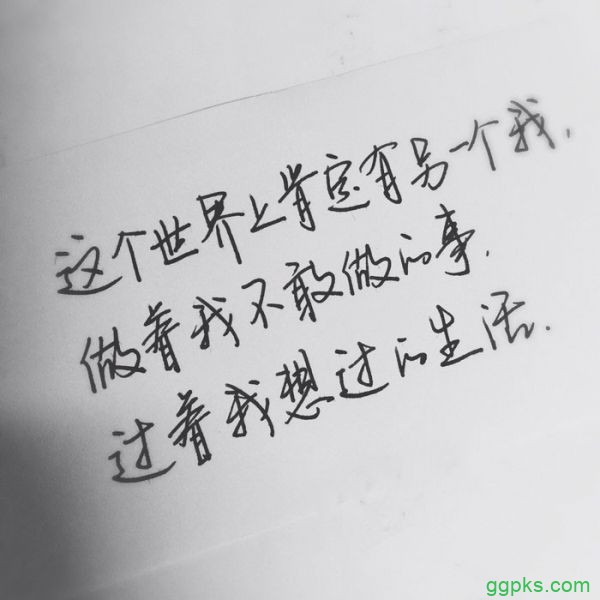 这个世界上肯定有另一个我,
做着我不敢做的事.
过着我想过的生活.
ggpks.com